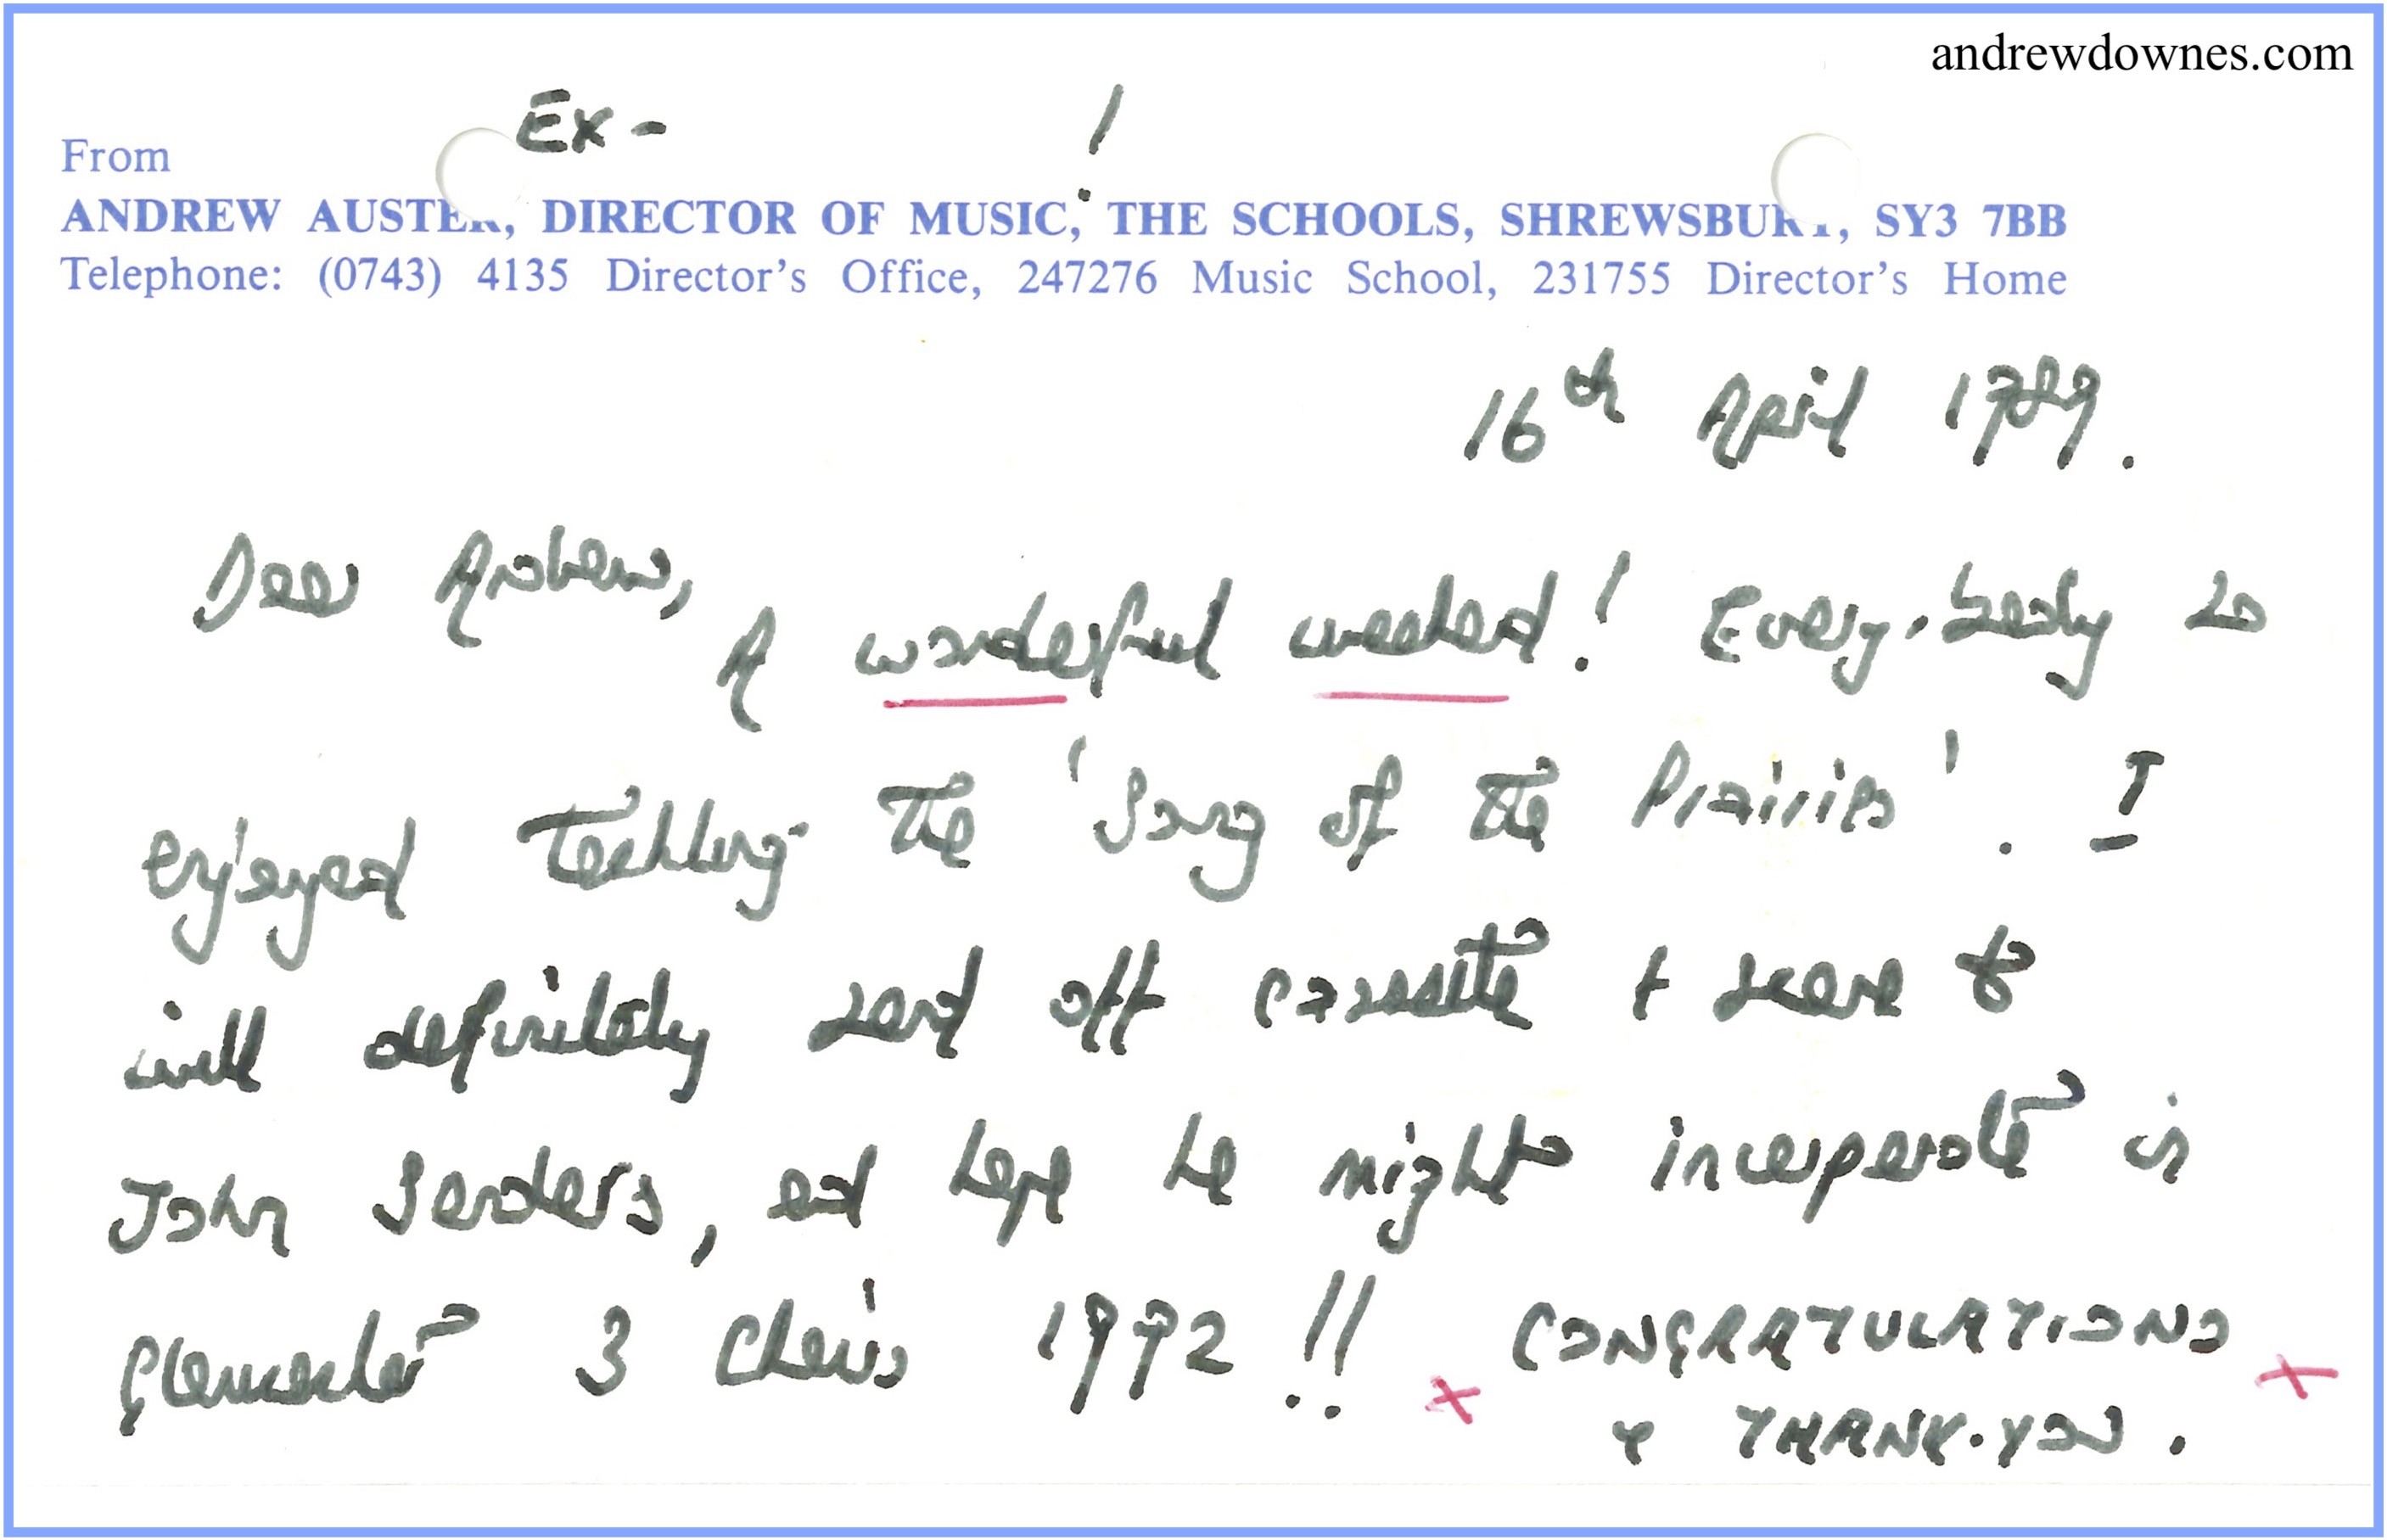 andrewdownes.com
Ex- !
From
ANDREW AUSTER, DIRECTOR OF MUSIC, THE SCHOOLS, SHREWSBURY, SY3 7BB
Telephone: (0743) 4135 Director's Office, 247276 Music School, 231755 Director's Home
16th April 1989.
Dear Andrew,
A wonderful weekend! Every-body so
enjoyed tackling the 'Song of the Prairies'. I
will definitely send off cassette & score to
John Sanders, and hope he might incorporate in
Gloucester 3 Choirs 1992!! x CONGRATULATIONS x
& THANK-YOU.